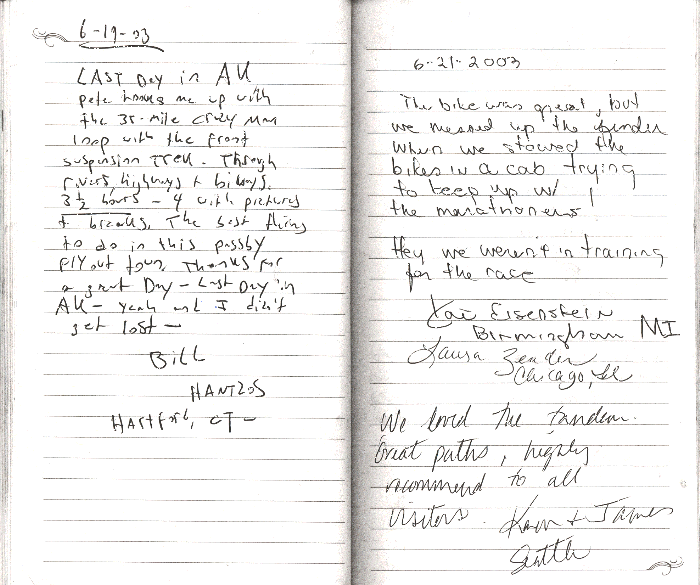 6-19-03
LAST Day in AK
pete hooks me up with
the 35-mile crazy man
loop with the front
suspension Trek. Through
rivers, highways + bikways.
3 1/2 hours - 4 with pictures
+ breaks. The best thing
to do in this
Fly out town. Thanks for
a great Day - Last Day in
AK - yeah and I didn't
get lost -
Bill
HANTZOS
HARTford, CT -
6-21-2003
The bike was great, but
we messed up the fender
when we stowed the
bikes in a cab trying
to keep up w/
the marathoners!
Hey we weren't in training
for the race
Eisenstein
Birmingham MI
Laura Zender
Chicago, Il
We loved the tandem.
Great paths, highly
recommend to all
visitors. Karen + James
Seattle